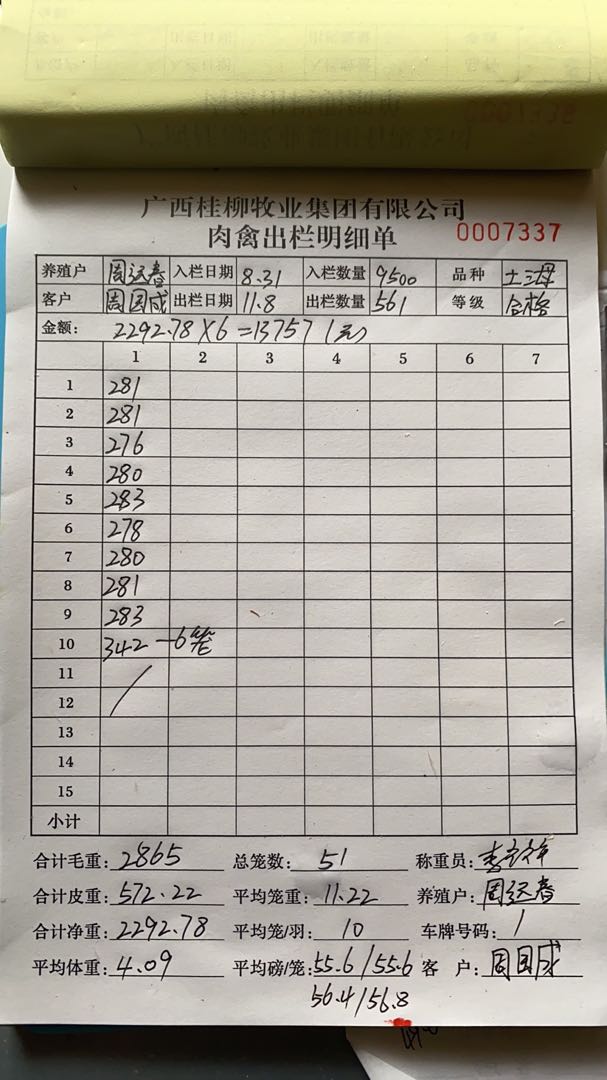 广西桂柳牧业集团有限公司
肉禽出栏明细单 0007337
养殖户 周运春 入栏日期 8.31 入栏数量 9500 品种 土三母
客户 周国成 出栏日期 11.8 出栏数量 561 等级 合格
金额: 2292.78×6=13757(元)
1 2 3 4 5 6 7
1 281
2 281
3 276
4 280
5 283
6 278
7 280
8 281
9 283
10 342 -6笼
11
12
13
14
15
小计
合计毛重: 2865 总笼数: 51 称重员:
合计皮重: 572.22 平均笼重: 11.22 养殖户: 周运春
合计净重: 2292.78 平均笼/羽: 10 车牌号码: 1
平均体重: 4.09 平均磅/笼: 55.6/55.6 客 户: 周国成
56.4/56.8